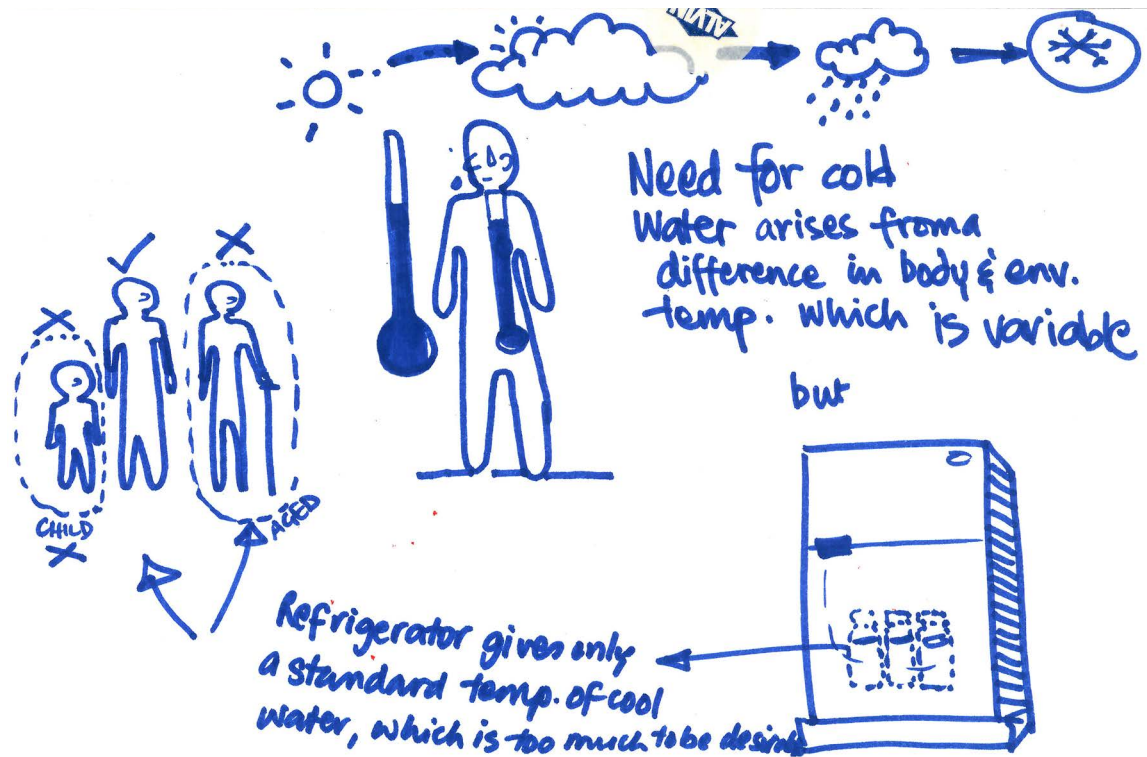 ALVIN
Need for cold
Water arises from a
difference in body & env.
temp. which is variable
but
CHILD
AGED
Refrigerator gives only
a standard temp. of cool
water, which is too much to be desired